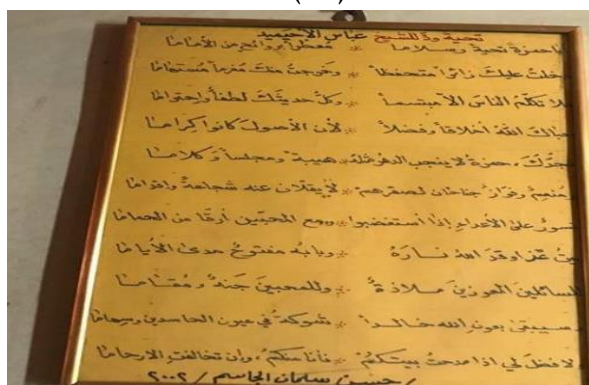 تحية ودّ للشيخ عباس الاحيميد
ياحمزة تحية وسلاما * معطراً بروائح من
دخلت عليك زائراً متحفظاً * وخرجت منك مغرماً مستهاما
لا تكلّم الناس الا مبتسماً * وكل حديثك لطفاً واحتراما
حباك الله أخلاقاً وفضلاً * لأن الأصول كانوا كراما
حمزة لا ينجب الدهر مثله * هيبة ومجلساً وكلاما
جناحان لصقرهم * لا يقلان عنه شجاعة واقداما
على الأعداء إذا * ومع المحبين أرقا من الحماما
بيت عز اوقد الله ناره * وبابه مفتوح مدى الأياما
للسائلين المعوزين ملاذة * وللمحبين جنة ومقاما
سيبقى بعون الله خالداً * شوكة في عيون الحاسدين وسهاما
لا فضل لي اذا مدحت بيتكم * فأنا منكم، وان تخالفت الارحاما
حسين سلمان الجاسم / ٢٠٠٢